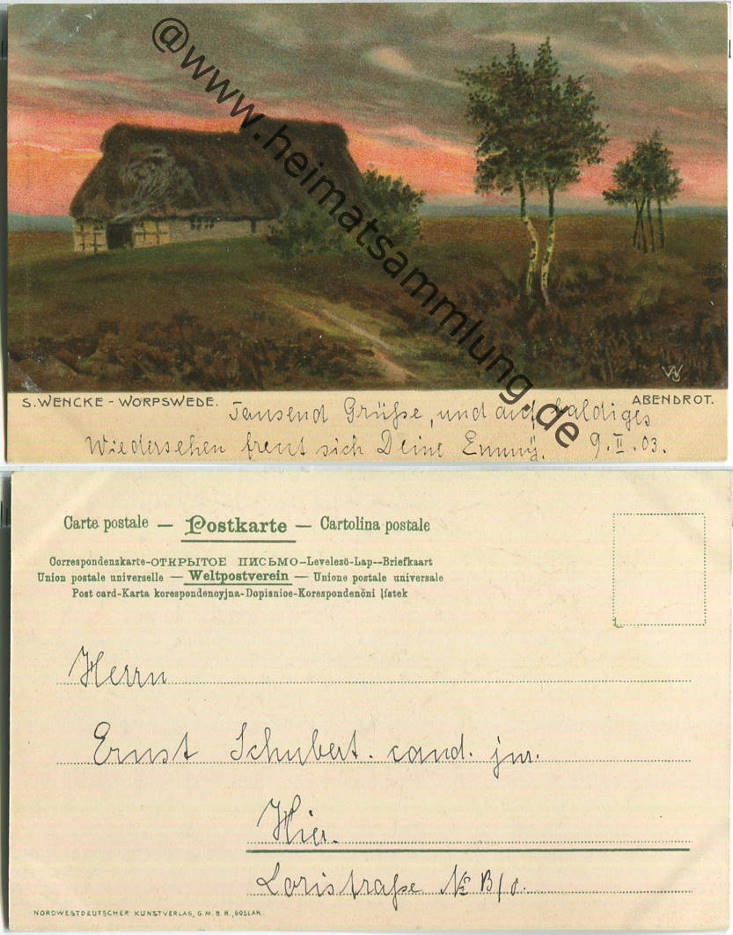 @www.heimatsammlung.de
S. WENCKE - WORPSWEDE.
ABENDROT.
Tausend Grüße, und auf baldiges
Wiedersehen freut sich Deine Emmy. 9. II. 03.
Carte postale — Postkarte — Cartolina postale
Correspondenzkarte-ОТКРЫТОЕ ПИСЬМО-Levelező-Lap--Briefkaart
Union postale universelle — Weltpostverein — Unione postale universale
Post card-Karta korespondencyjna-Dopisnice-Korespondenční lístek
Herrn
Ernst Schubert. cand. jur.
Hier.
Loristraße №
NORDWESTDEUTSCHER KUNSTVERLAG, G.M.B.H., GOSLAR.